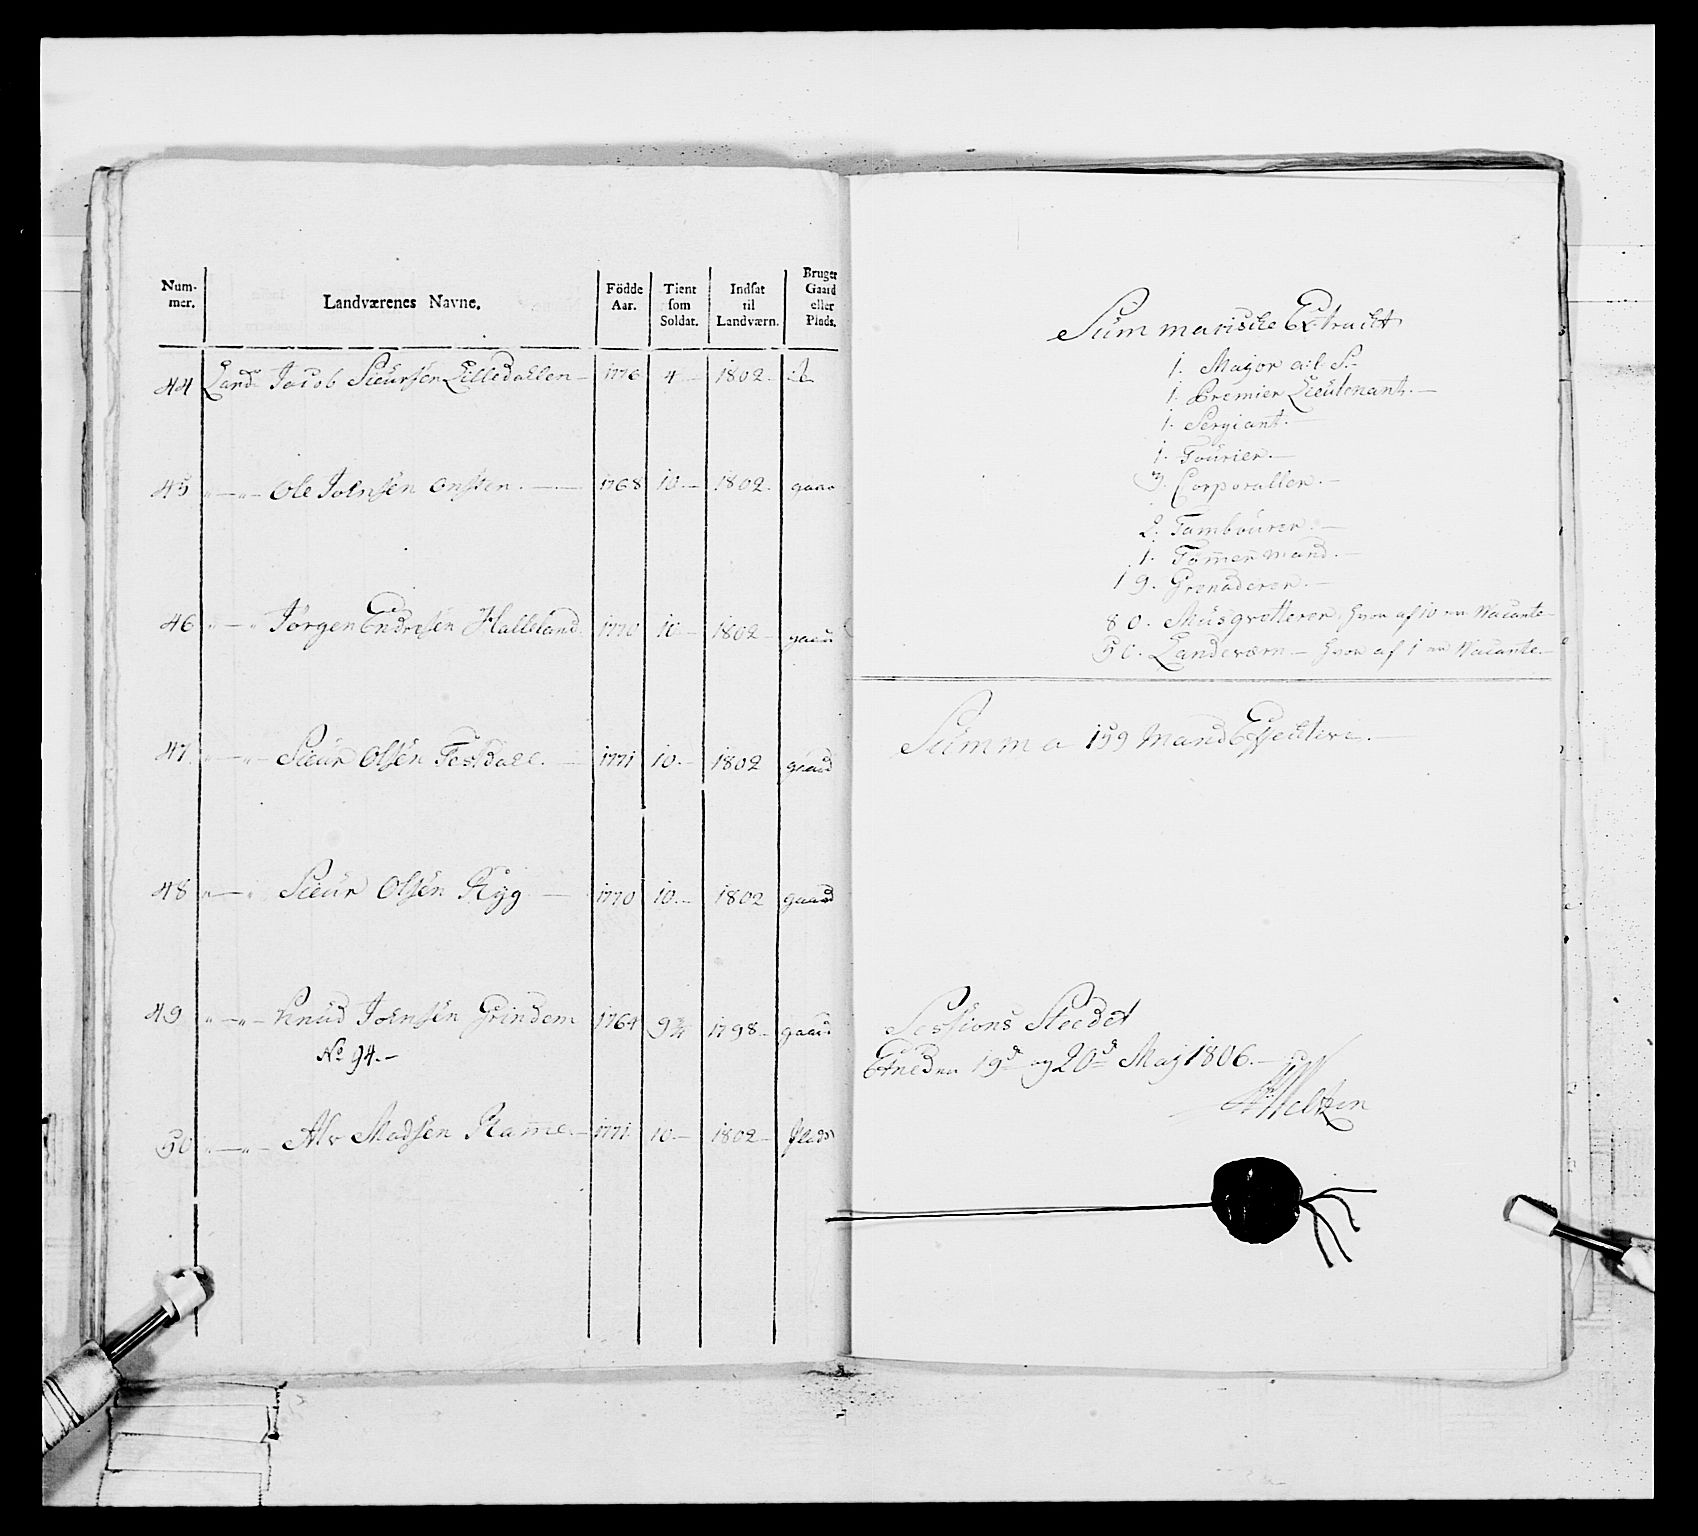 Num-
mer.
Landværenes Navne.
Födde
Aar.
Tient
som
Soldat.
Indsat
til
Landværn.
Bruger
Gaard
eller
Plads.
44 Land Jacob Sieursen Lilledallen 1776 4 1802
45 " — " — Ole Johnsen Onsten 1768 10 1802 gaar
46 " — " Jörgen Endresen Halleland 1770 10 1802 gaard
47 " — " — Sieur Olsen Festdall 1771 10 1802 gaard
48 " — " Sieur Olsen Ryg 1770 10 1802 gaard
49 " — " — Knud Johnsen Grindem 1764 9¾ 1798 gaard
No 94.
50 " — " — Alv Madsen Ramme 1771 10 1802 Plads
Summariske Extract
1. Major a:l: S:
1. Premier Lieutenant.
1. Sergiant.
1. Fourier.
3. Corporaller.
2. Tambourer.
1. Tömmermand.
19. Grenaderer.
80. Musqvetterer, hvor af 10 er Vacante
50. Landeværn. hvor af 1 er Vacante.
Summa 159 Mand Effective.
Sessions Steedet
Etne den 19d og 20d Maj 1806.
Weltzen